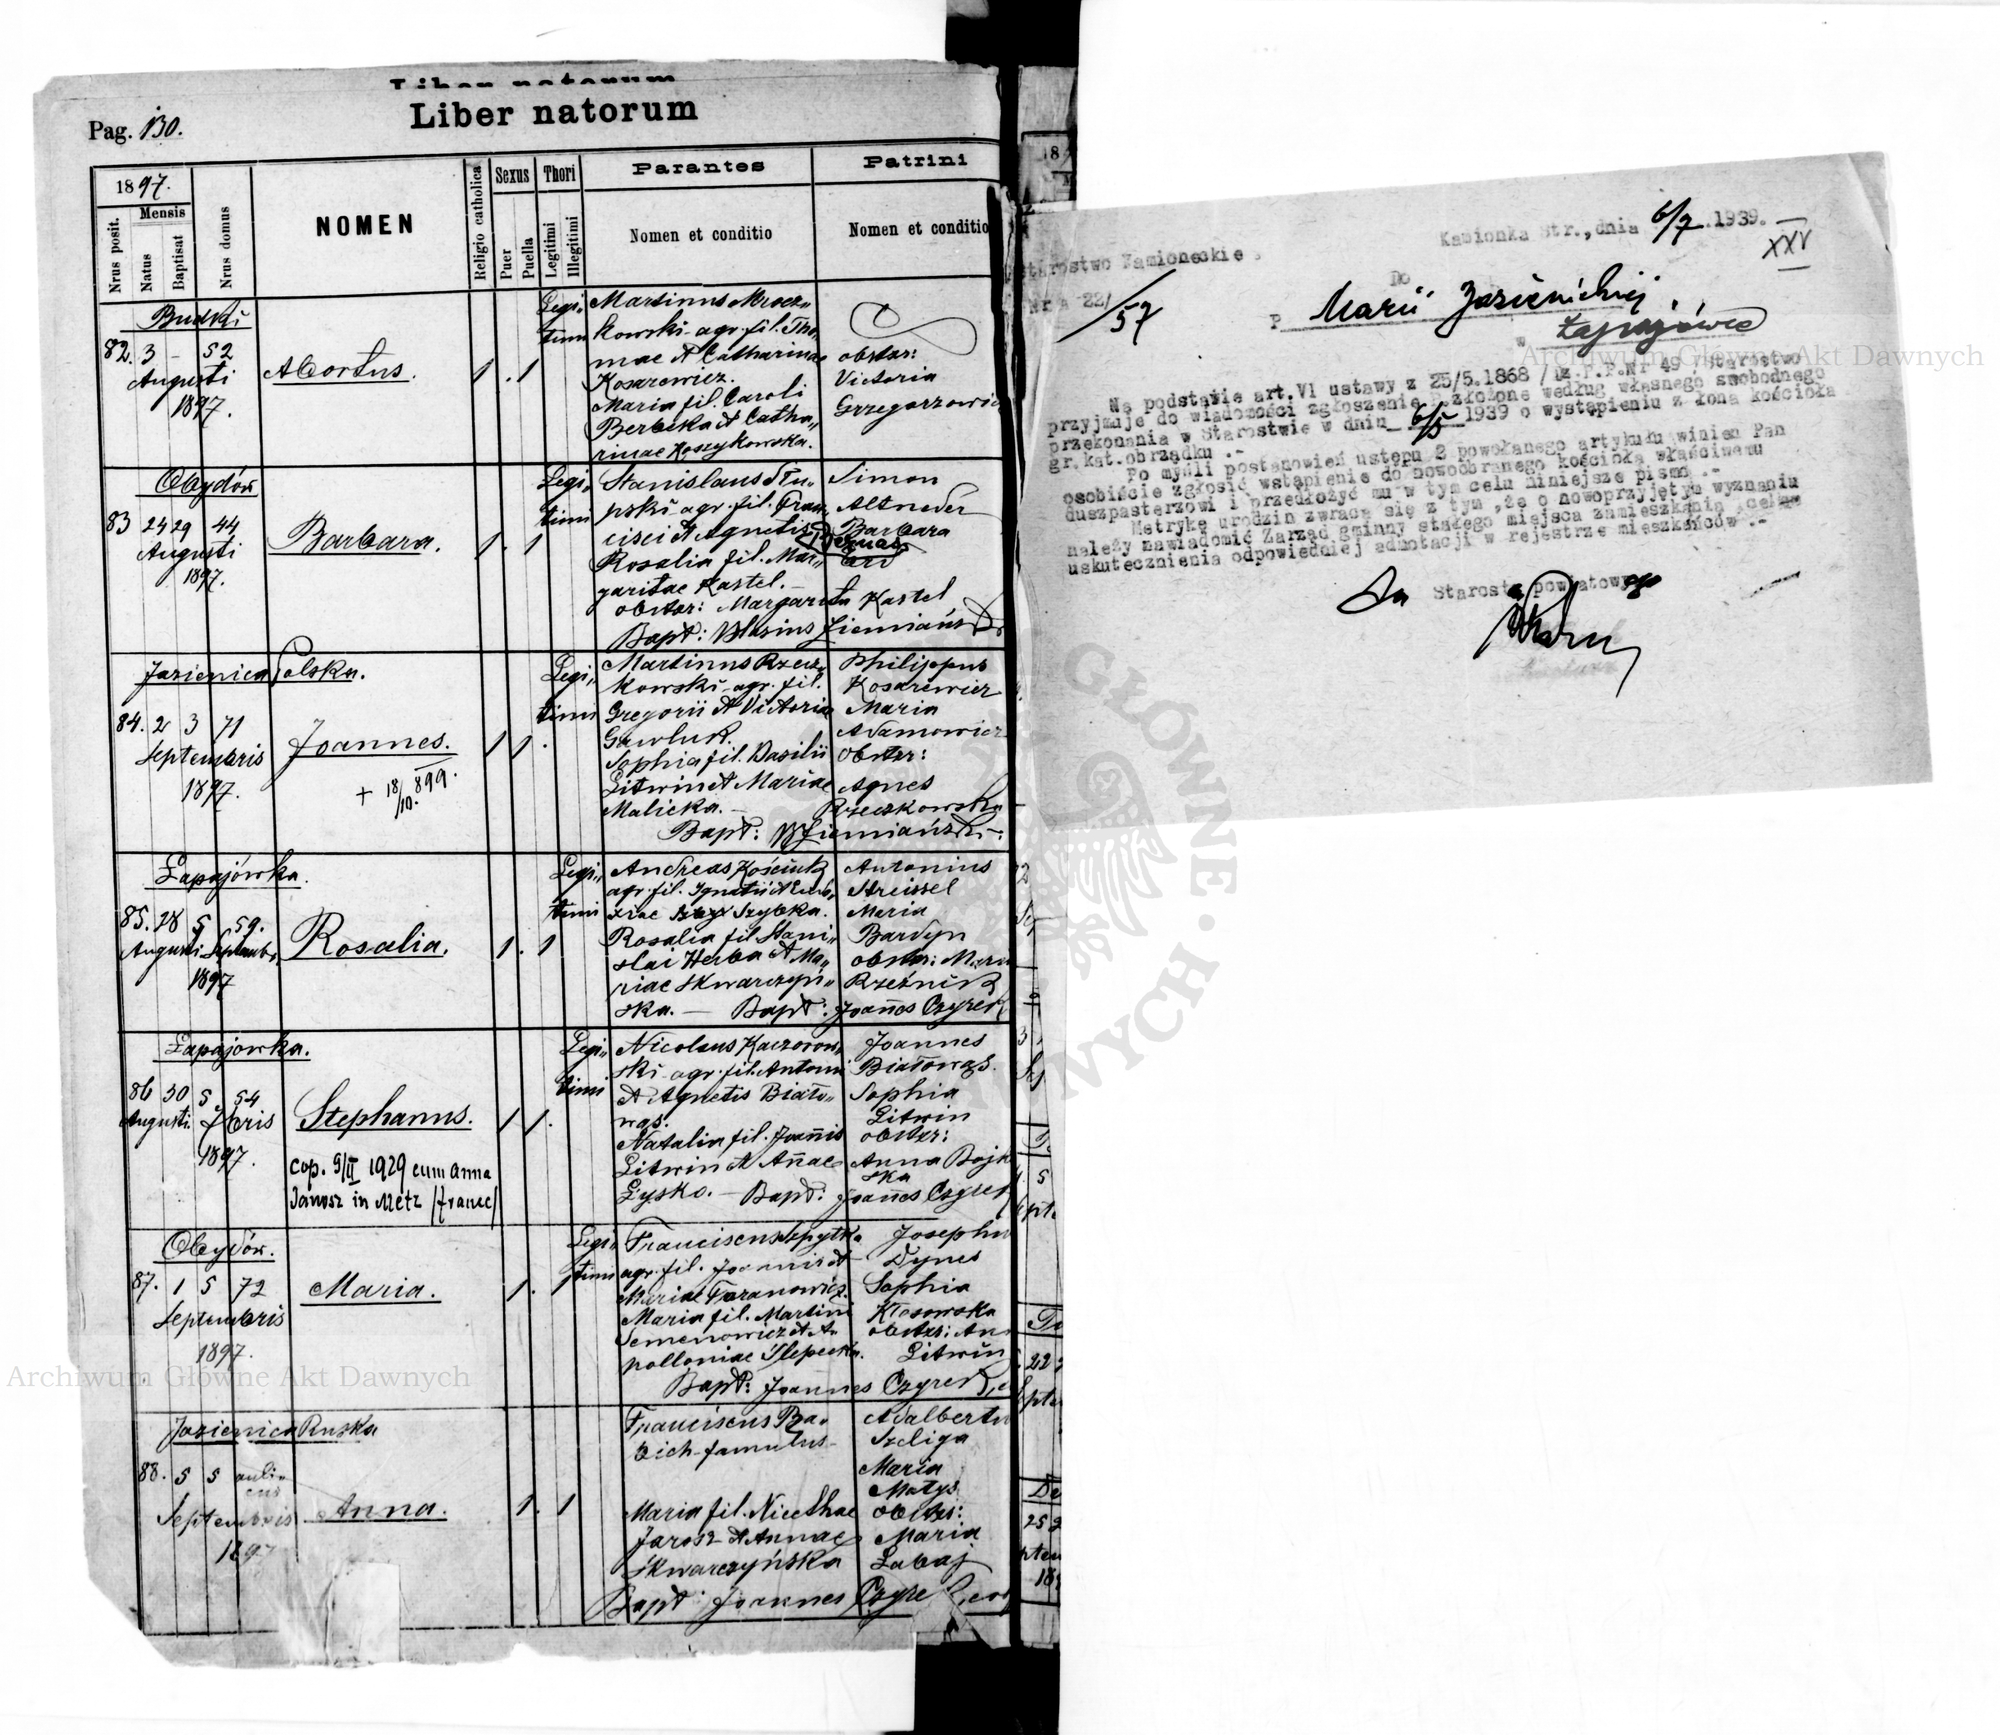 Liber natorum
Pag. 130.
1897.
Nrus posit.
Mensis
Natus
Baptisat
Nrus domus
NOMEN
Religio catholica
Sexus
Puer
Puella
Thori
Legitimi
Illegitimi
Parentes
Nomen et conditio
Patrini
Nomen et conditio
Budki
82. 3 - 52
Augusti
1897.
Abortus.
Legi„
timi
Martinus Mrocz„
kowski agr. fil. Tho„
mae et Catharinae
Kosarewicz.
Maria fil. Caroli
Berbeka et Catha„
rinae Koszykowska.
obstet:
Victoria
Grzegorzowicz
Obydów
83 24 29 44
Augusti
1897.
Barbara.
Legi„
timi
Stanislaus Słu„
pski agr. fil. Fran„
cisci et Agnetis
Rosalia fil. Mar„
garitae Kastel.
Simon
Altneder
Barbara
obstet: Margareta Kastel
Bapt: Blasius Ziemiański
Jazienica Polska.
84. 2 3 71
Septembris
1897.
Joannes.
+ 18/10. 899.
Legi„
timi
Martinus Rzecz„
kowski agr. fil.
Gregorii et Victoria
Gawluk.
Sophia fil. Basilii
Litwin et Mariae
Malicka.
Philippus
Kosarewicz
Maria
Adamowicz
Obstet:
Agnes
Rzeczkowska
Bapt: B Ziemiański
Łapajówka.
85. 28 5 59.
Augusti Septemb.
1897
Rosalia.
Legi„
timi
Andreas Kościuk
agr. fil. Ignatii et
Szybka.
Rosalia fil. Stani„
slai Herba et Ma„
riae Skwarczyń„
ska. — Bapt: Joannes Czyrek
Antonius
Streissel
Maria
Bardyn
obstet: Maria
Rzeźnik
Łapajówka.
86 30 5 54
Augusti. 7bris
1897.
Stephanus.
cop. 9/II 1929 cum Anna
Janosz in Metz /France/
Legi„
timi
Nicolaus Kaczorow„
ski agr. fil. Antonii
et Agnetis Biało„
wąs.
Natalia fil. Joannis
Litwin et Annae
Łysko. — Bapt: Joannes Czyrek
Joannes
Białowąs.
Sophia
Litwin
obstet:
Anna Bojk
ska
Obydów.
87. 1 5 72
Septembris
1897.
Maria.
Legi„
timi
Franciscus Szpytka
agr. fil. Joannis et
Mariae Taranowicz.
Maria fil. Martini
Semenowicz et A„
polloniae Ślepecka.
Josephus
Dynes
Sophia
Kłosowska
obstet: Anna
Litwin
Bapt: Joannes Czyrek
Jazienica Ruska
88. 5 5 auli„
cus
Septembris
1897
Anna.
Franciscus Ba„
bich famulus
Maria fil. Nicethae
Jarosz et Annae
Skwarczyńska
Adalbertus
Szeliga
Maria
Matys
obstet:
Maria
Łabaj
Bapt Joannes Czyre
Starostwo Kamioneckie
Nr a 22/57
Kamionka Str., dnia 6/7 1939.
XXV
Do
P Marii Jazienickiej.
w Łapajówce
Na podstawie art.VI ustawy z 25/5.1868 /Dz.P.P.Nr 49 /Starostwo
przyjmuje do wiadomości zgłoszenie P.złożone według własnego swobodnego
przekonania w Starostwie w dniu 6/5 1939 o wystąpieniu z łona kościoła
gr.kat.obrządku .-
Po myśli postanowień ustępu 2 powołanego artykułu winien Pan
osobiście zgłosić wstąpienie do nowoobranego kościoła właściwemu
duszpasterzowi i przedłożyć mu w tym celu niniejsze pismo .-
Metrykę urodzin zwraca się z tym ,że o nowoprzyjętym wyznaniu
należy zawiadomić Zarząd gminny stałego miejsca zamieszkania ,celem
uskutecznienia odpowiedniej adnotacji w rejestrze mieszkańców .-
Za Starostę powiatowego
Archiwum Główne Akt Dawnych
Archiwum Główne Akt Dawnych